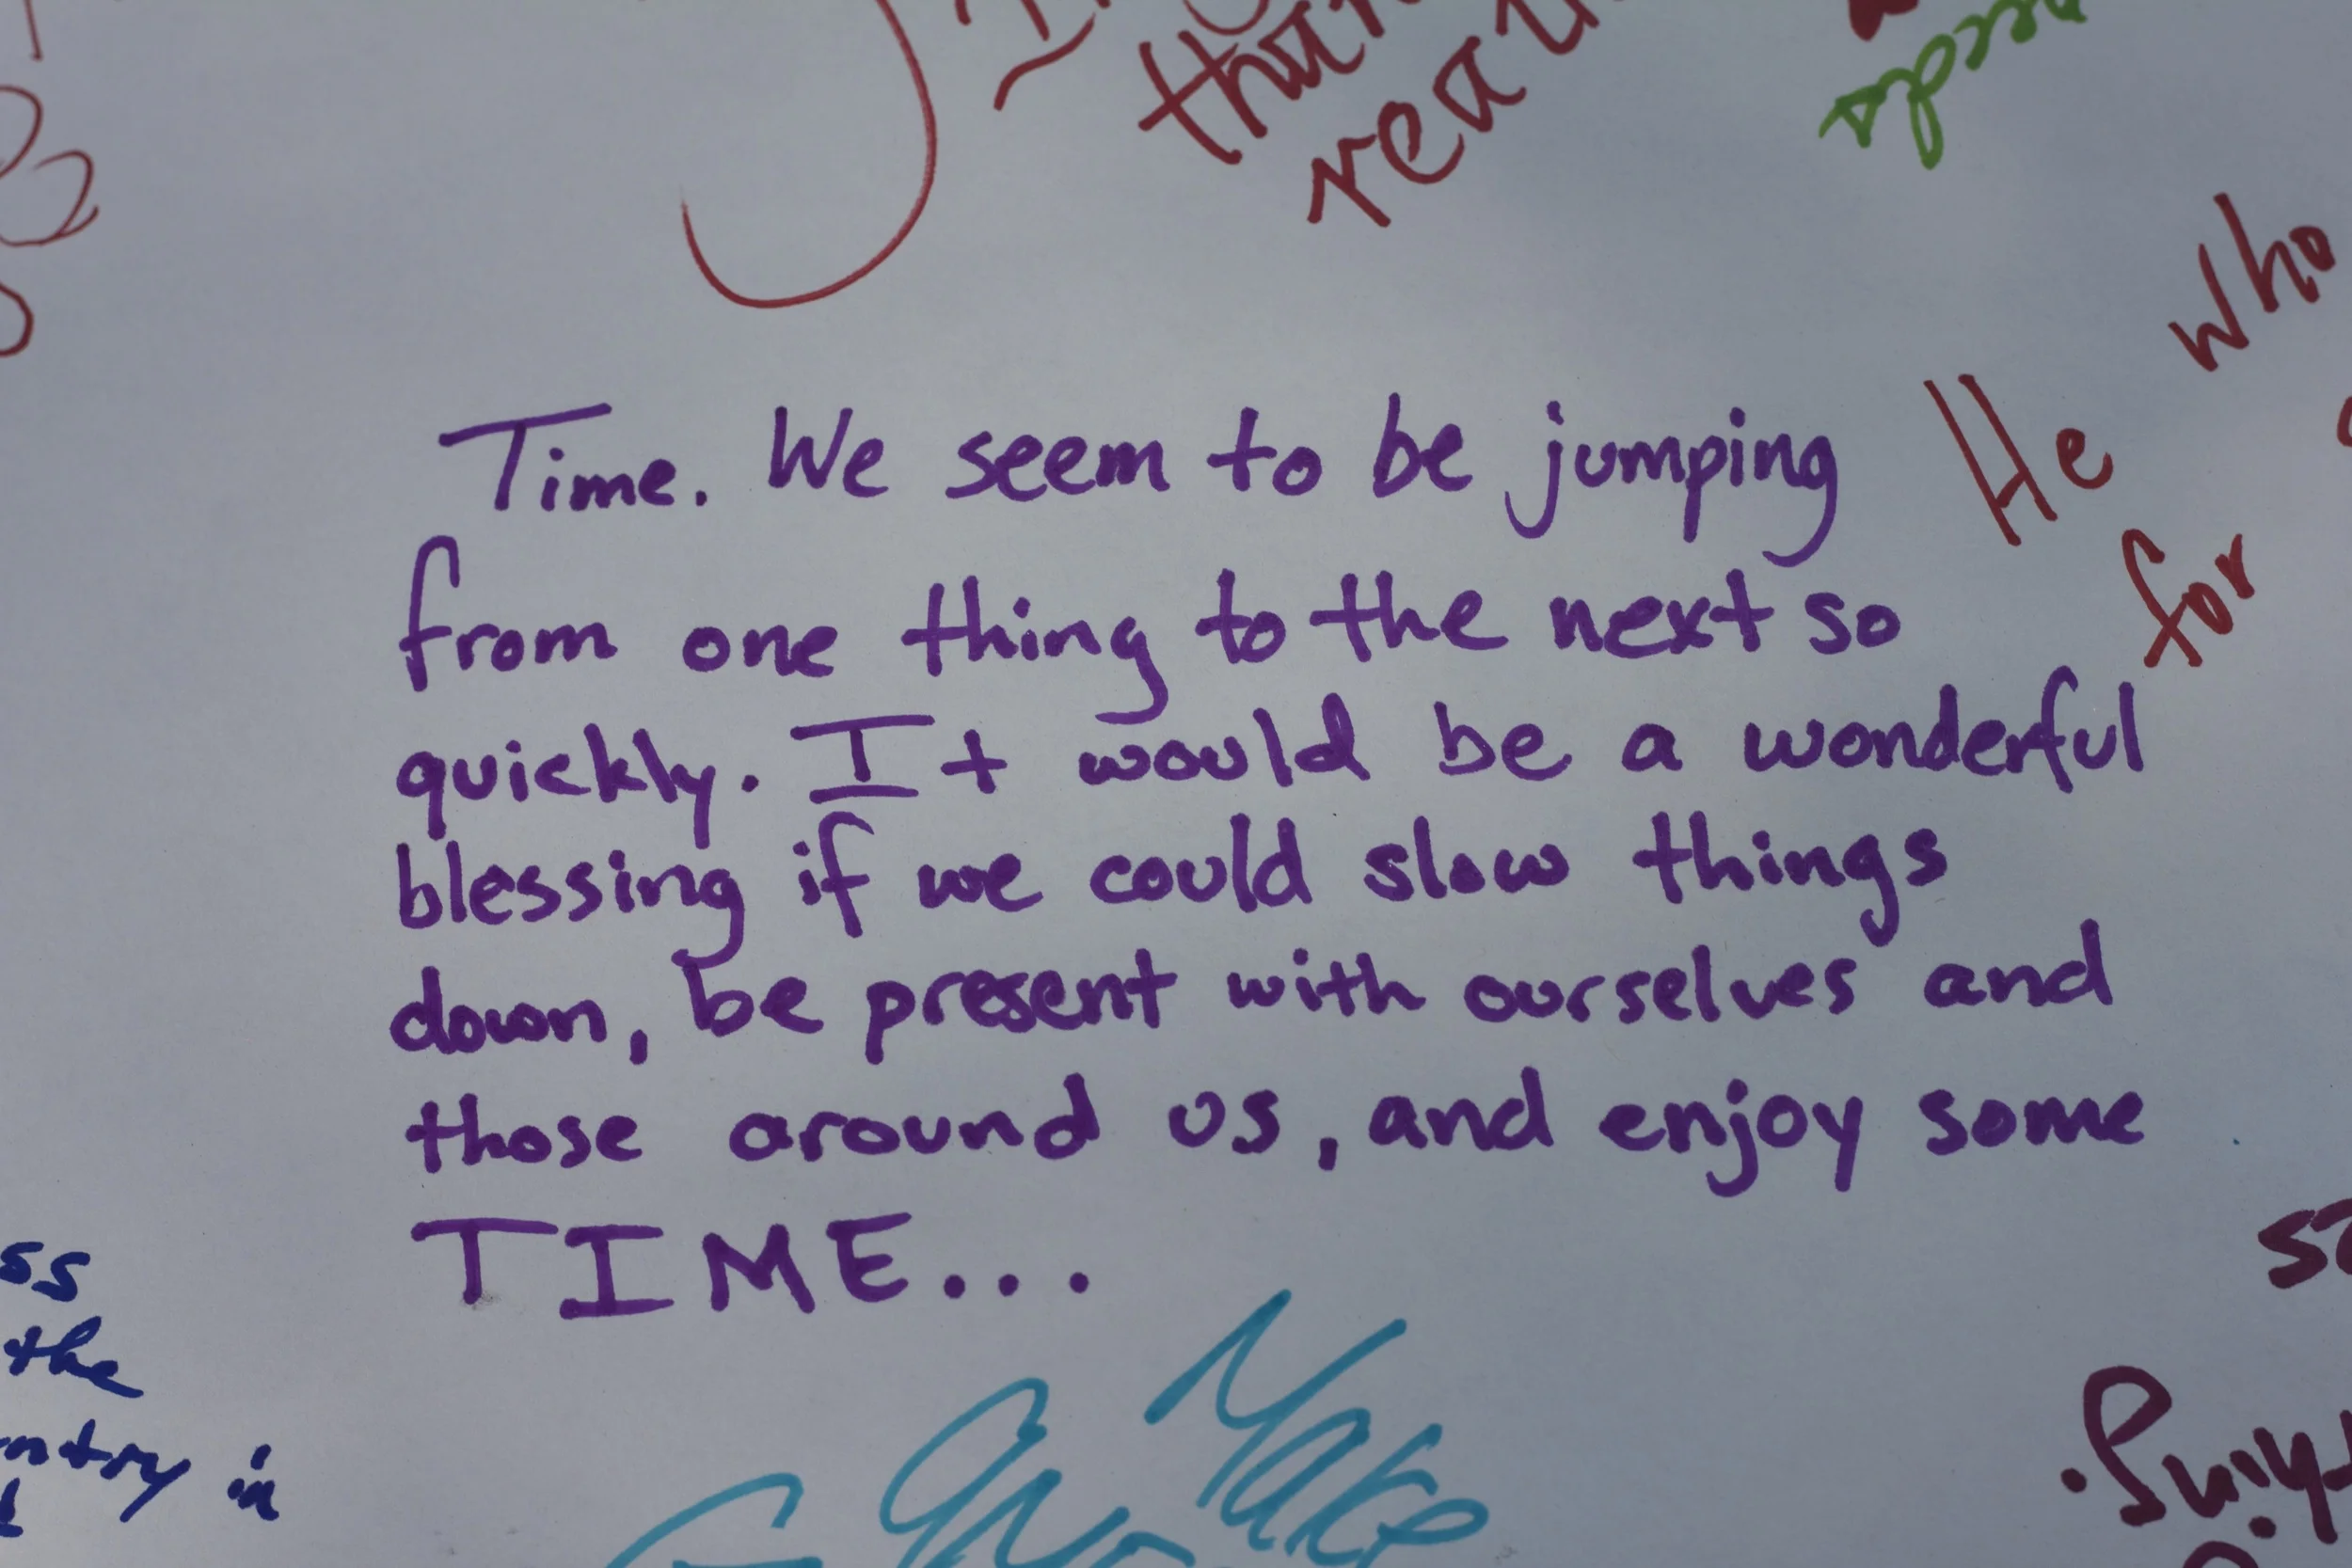 Time. We seem to be jumping
from one thing to the next so
quickly. It would be a wonderful
blessing if we could slow things
down, be present with ourselves and
those around us, and enjoy some
TIME...
He who
for
the
in
Make